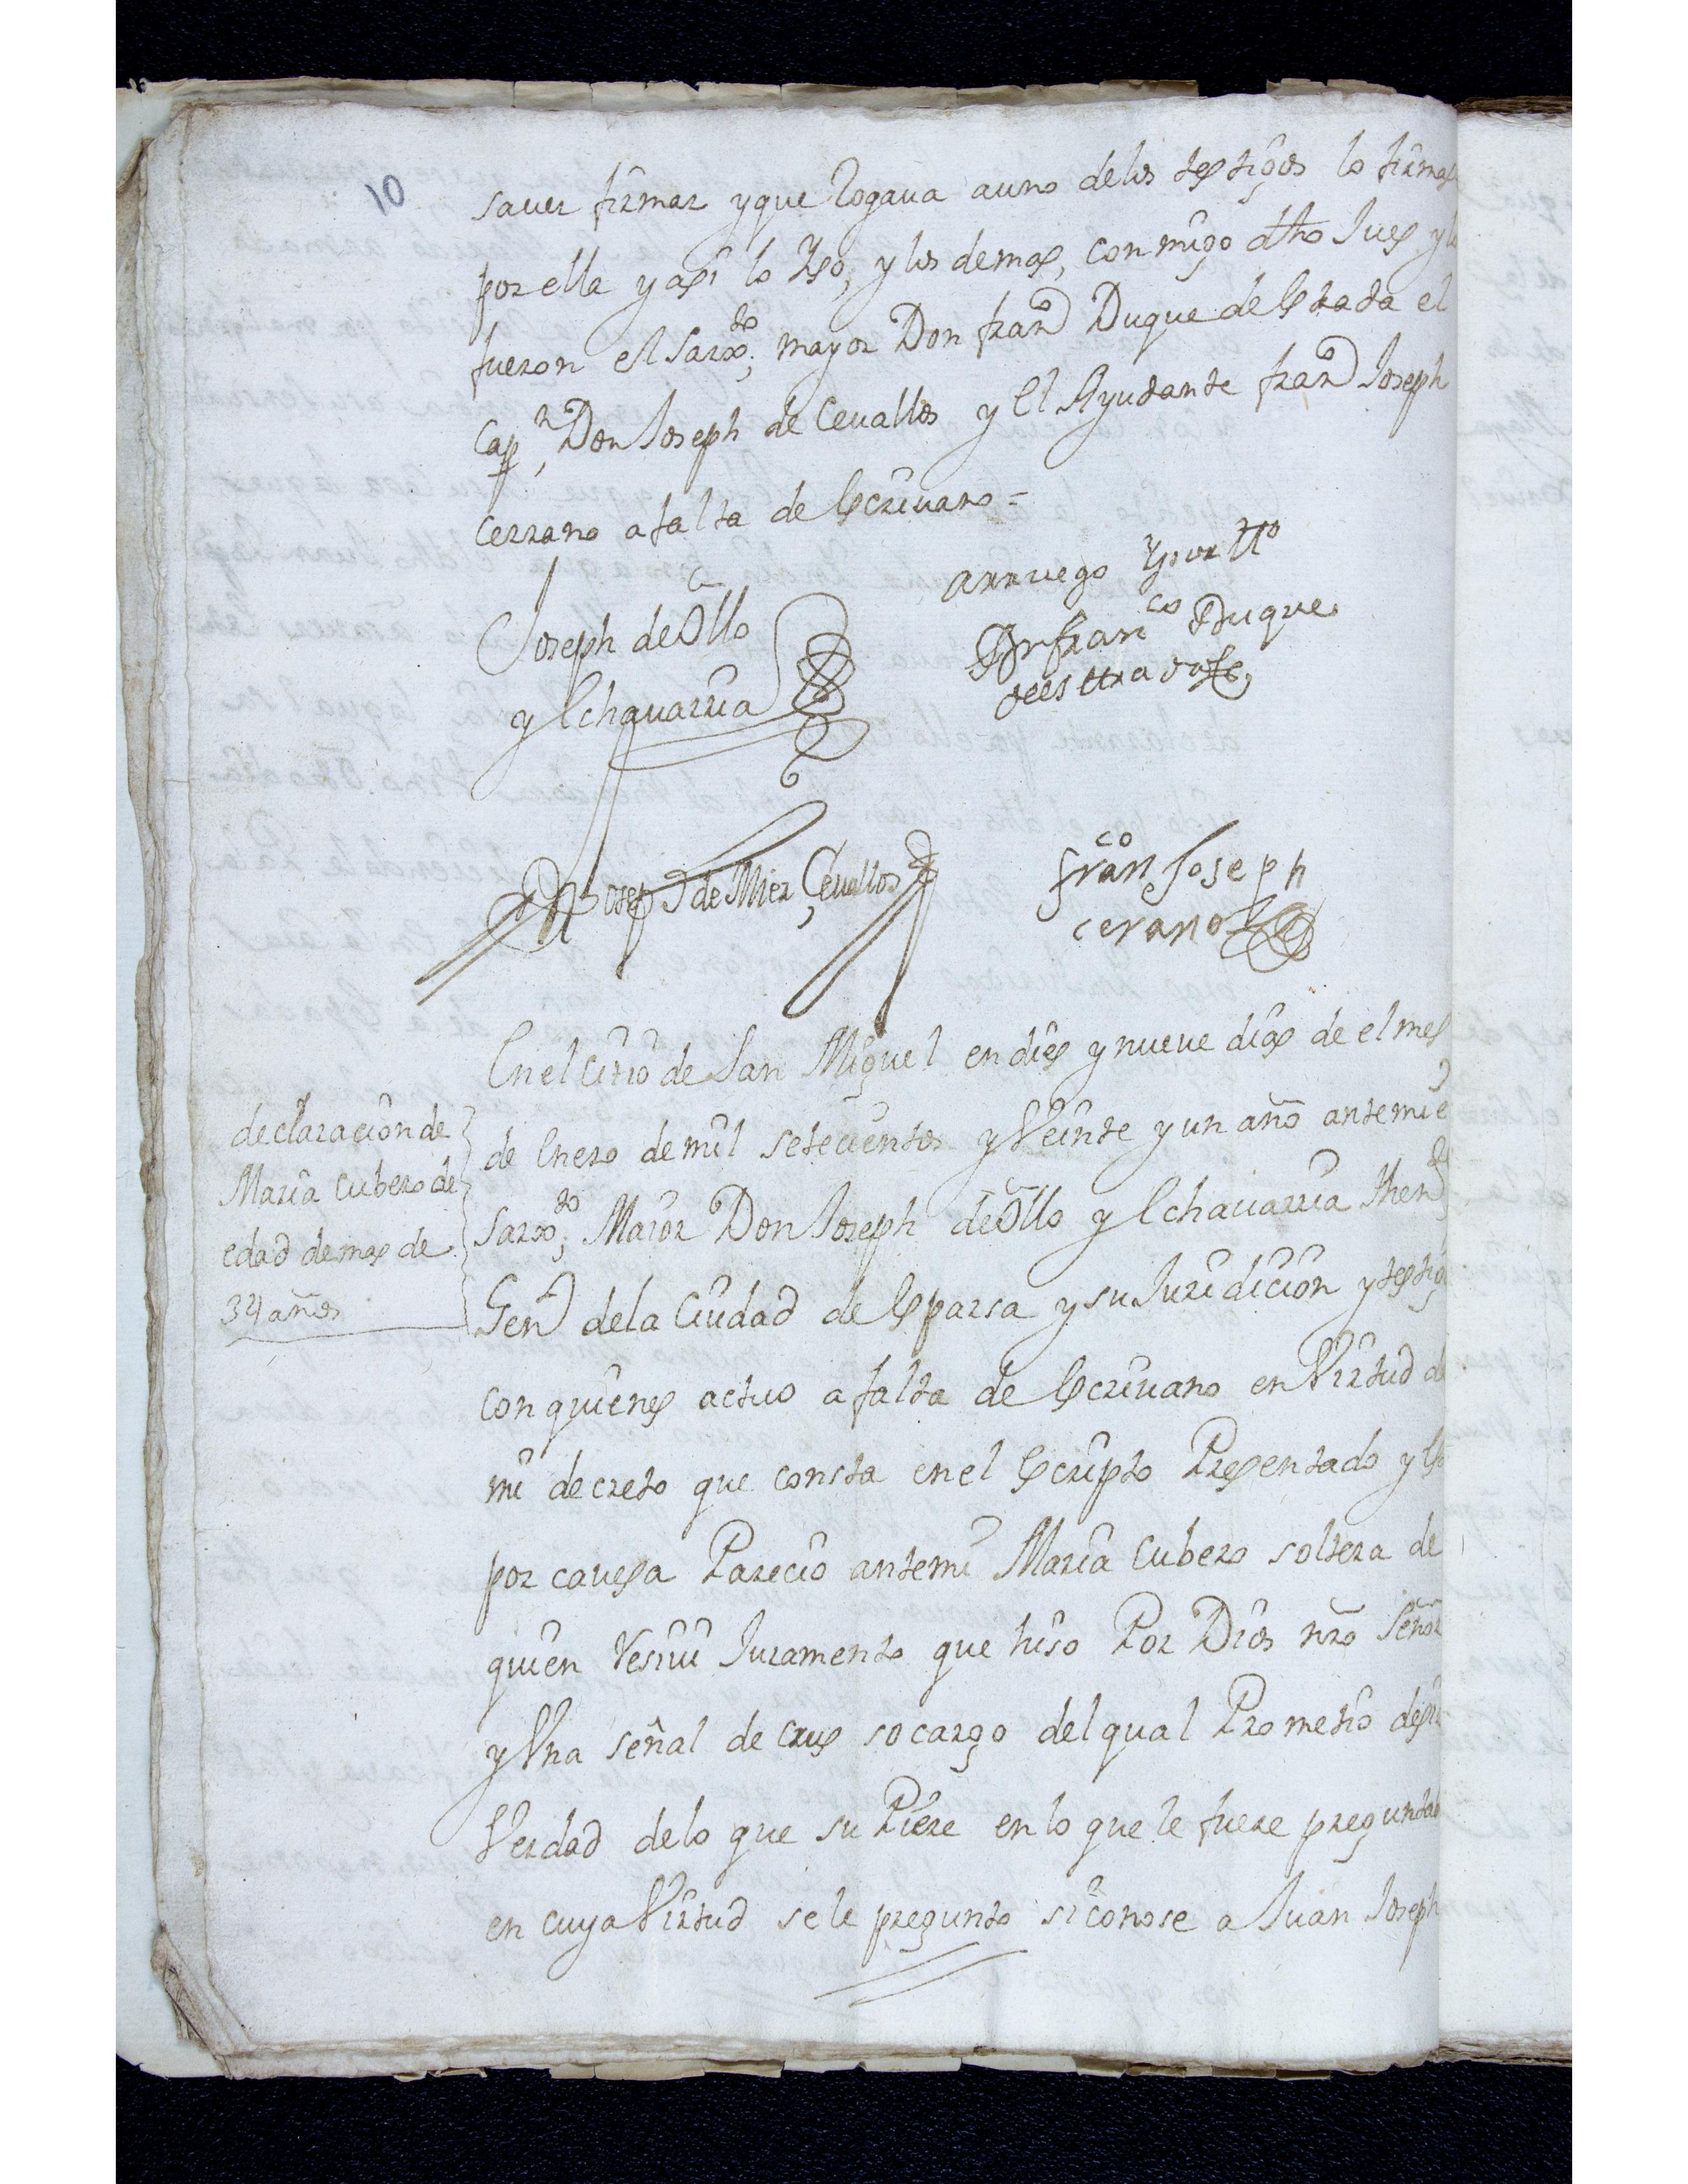 10
saver firmar y que Rogava a uno de los testigos lo firmase
por ella y asi lo Yso, y los demas, conmigo dho Jues y lo
fueron el Sarxto; mayor Don franco Duque de Estrada el
Capn, Don Joseph de Cevallos y El Ayudante franco Joseph
Cerrano a falta de Escrivano =
Joseph de Ollo
y Echavarria
arruego y por tto
Dn franco Duque
de esttrada
Dn Joseph de Mier Cevallos
franco Joseph
cerano
declaracion de
Maria Cubero de
edad de mas de
34 años
En el Citio de San Miguel en dies y nueve dias de el mes
de Enero de mil setecientos y Veinte y un año ante mi e
Sarxto; Maior Don Joseph de Ollo y Echavarria Thente
Genl de la Ciudad de Esparsa y su Juridicion y testigo
con quienes actuo a falta de Escrivano en Virtud de
mi decreto que consta en el Escripto Presentado y
por cavesa Parecio ante mi Maria Cubero soltera de
quien Resivi Juramento que hiso Por Dios nro Señor
y Vna señal de Crus so cargo del qual Prometio desir
Verdad de lo que su Piere en lo que le fuere preguntado
en cuya Virtud se le pregunto si conose a Juan Joseph